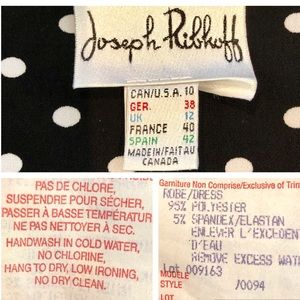 Joseph Ribkoff
CAN/U.S.A. 10
GER. 38
UK 12
FRANCE 40
SPAIN 42
MADE IN/FAIT AU
CANADA
PAS DE CHLORE,
SUSPENDRE POUR SÉCHER,
PASSER À BASSE TEMPÉRATUR
NE PAS NETTOYER À SEC.
HANDWASH IN COLD WATER,
NO CHLORINE,
HANG TO DRY, LOW IRONING,
NO DRY CLEAN.
Garniture Non Comprise/Exclusive of Trim
ROBE/DRESS
95% POLYESTER
5% SPANDEX/ELASTAN
ENLEVER L'EXCEDENT
D'EAU
REMOVE EXCESS WATE
Lot 009163
MODELE
STYLE /0094
LOT